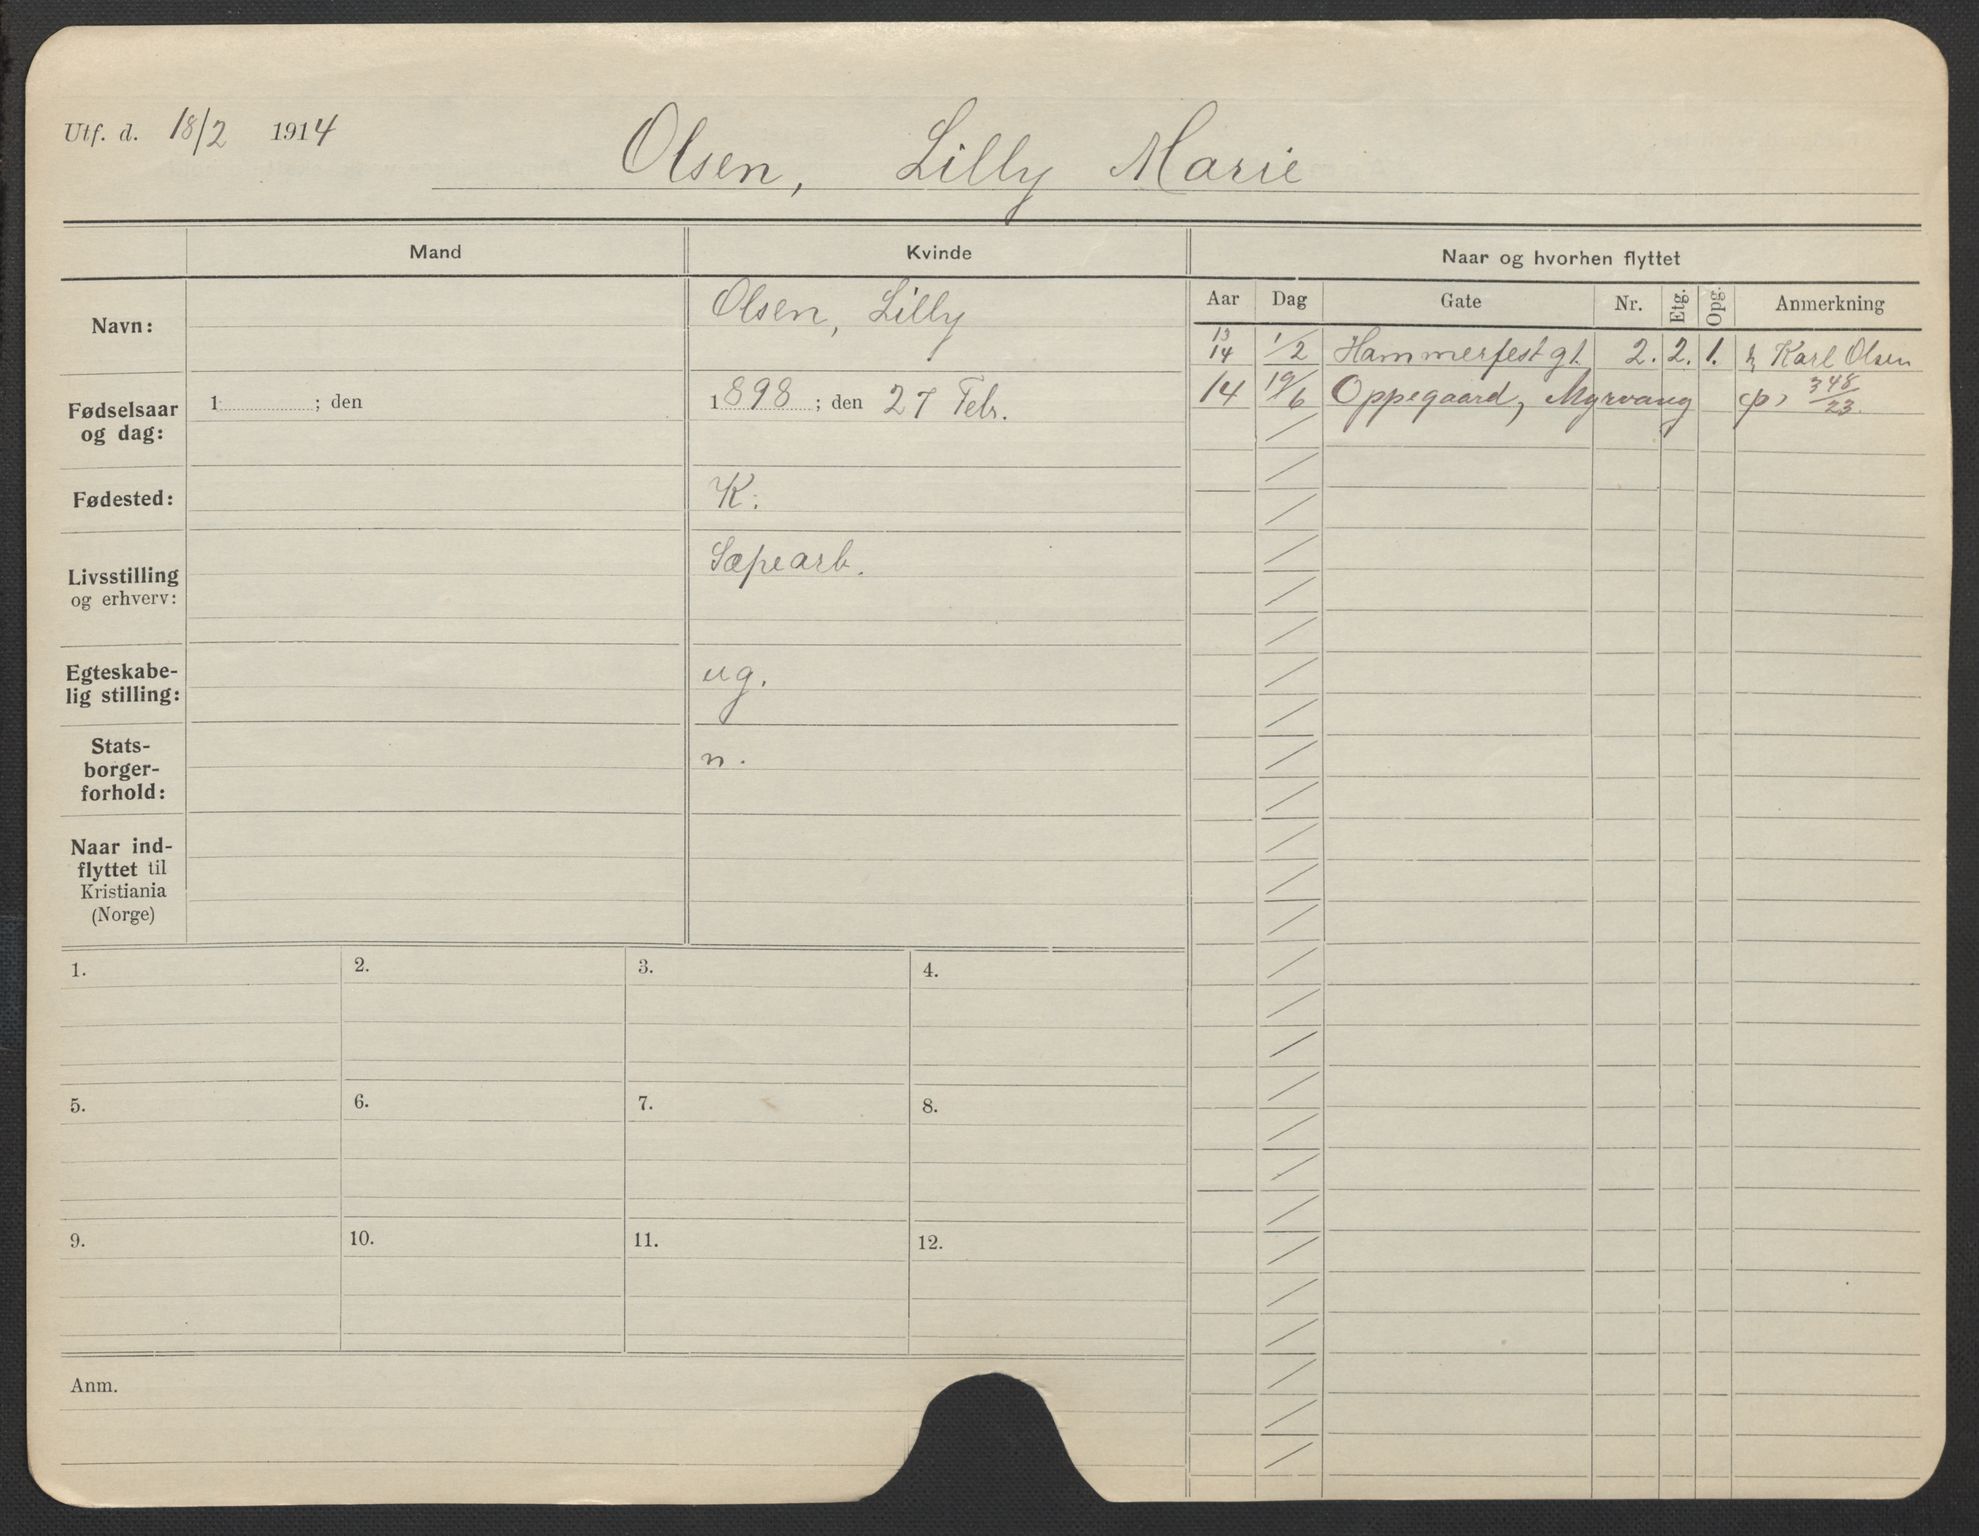 Utf. d. 18/2 1914
Olsen, Lilly Marie
Mand
Kvinde
Naar og hvorhen flyttet
Navn:
Olsen, Lilly
Fødselsaar
og dag:
1 ; den
1898 ; den 27 Febr.
Fødested:
K.
Livsstilling
og erhverv:
Sæpearb.
Egteskabe-
lig stilling:
ug.
Stats-
borger-
forhold:
n.
Naar ind-
flyttet til
Kristiania
(Norge)
Aar Dag Gate Nr. Etg. Opg. Anmerkning
13
14 1/2 Hammerfestgt. 2. 2. 1. Karl Olsen
14 19/6 Oppegaard, Myrvang 348/23.
1. 2. 3. 4.
5. 6. 7. 8.
9. 10. 11. 12.
Anm.